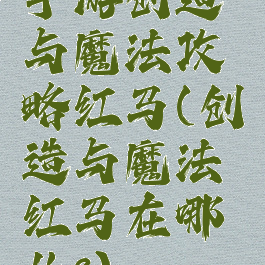 手游创造
与魔法攻
略红马(创
造与魔法
红马在哪